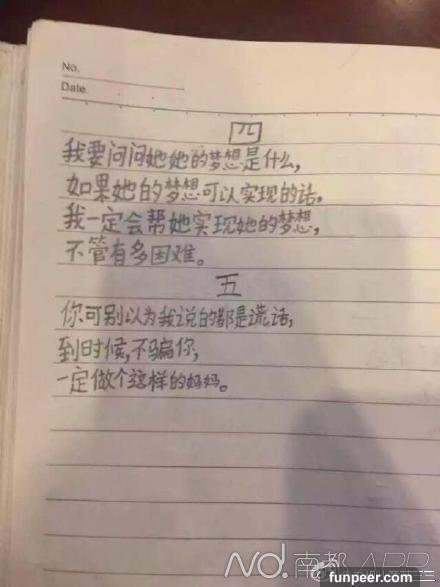 No.
Date.
四
我要问问她她的梦想是什么,
如果她的梦想可以实现的话,
我一定会帮她实现她的梦想,
不管有多困难。
五
你可别以为我说的都是谎话,
到时候,不骗你,
一定做个这样的妈妈。
ND.南都APP
funpeer.com